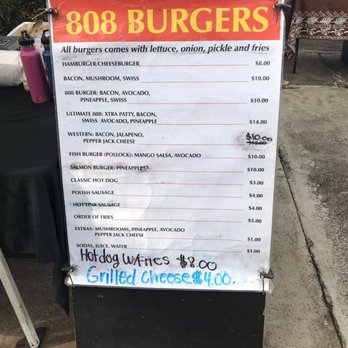 808 BURGERS
All burgers comes with lettuce, onion, pickle and fries
HAMBURGER/CHEESEBURGER $8.00
BACON, MUSHROOM, SWISS $10.00
808 BURGER: BACON, AVOCADO,
PINEAPPLE, SWISS $10.00
ULTIMATE 808: XTRA PATTY, BACON,
SWISS AVOCADO, PINEAPPLE $14.00
WESTERN: BACON, JALAPENO, $10.00
PEPPER JACK CHEESE
FISH BURGER (POLLOCK): MANGO SALSA, AVOCADO $10.00
SALMON BURGER: PINEAPPLE $10.00
CLASSIC HOT DOG $3.00
POLISH SAUSAGE $4.00
HOT LINK SAUSAGE $4.00
ORDER OF FRIES $5.00
EXTRAS: MUSHROOMS, PINEAPPLE, AVOCADO
PEPPER JACK CHEESE $1.00
SODAS, JUICE, WATER $1.00
Hotdog w/Fries $8.00
Grilled Cheese $4.00.